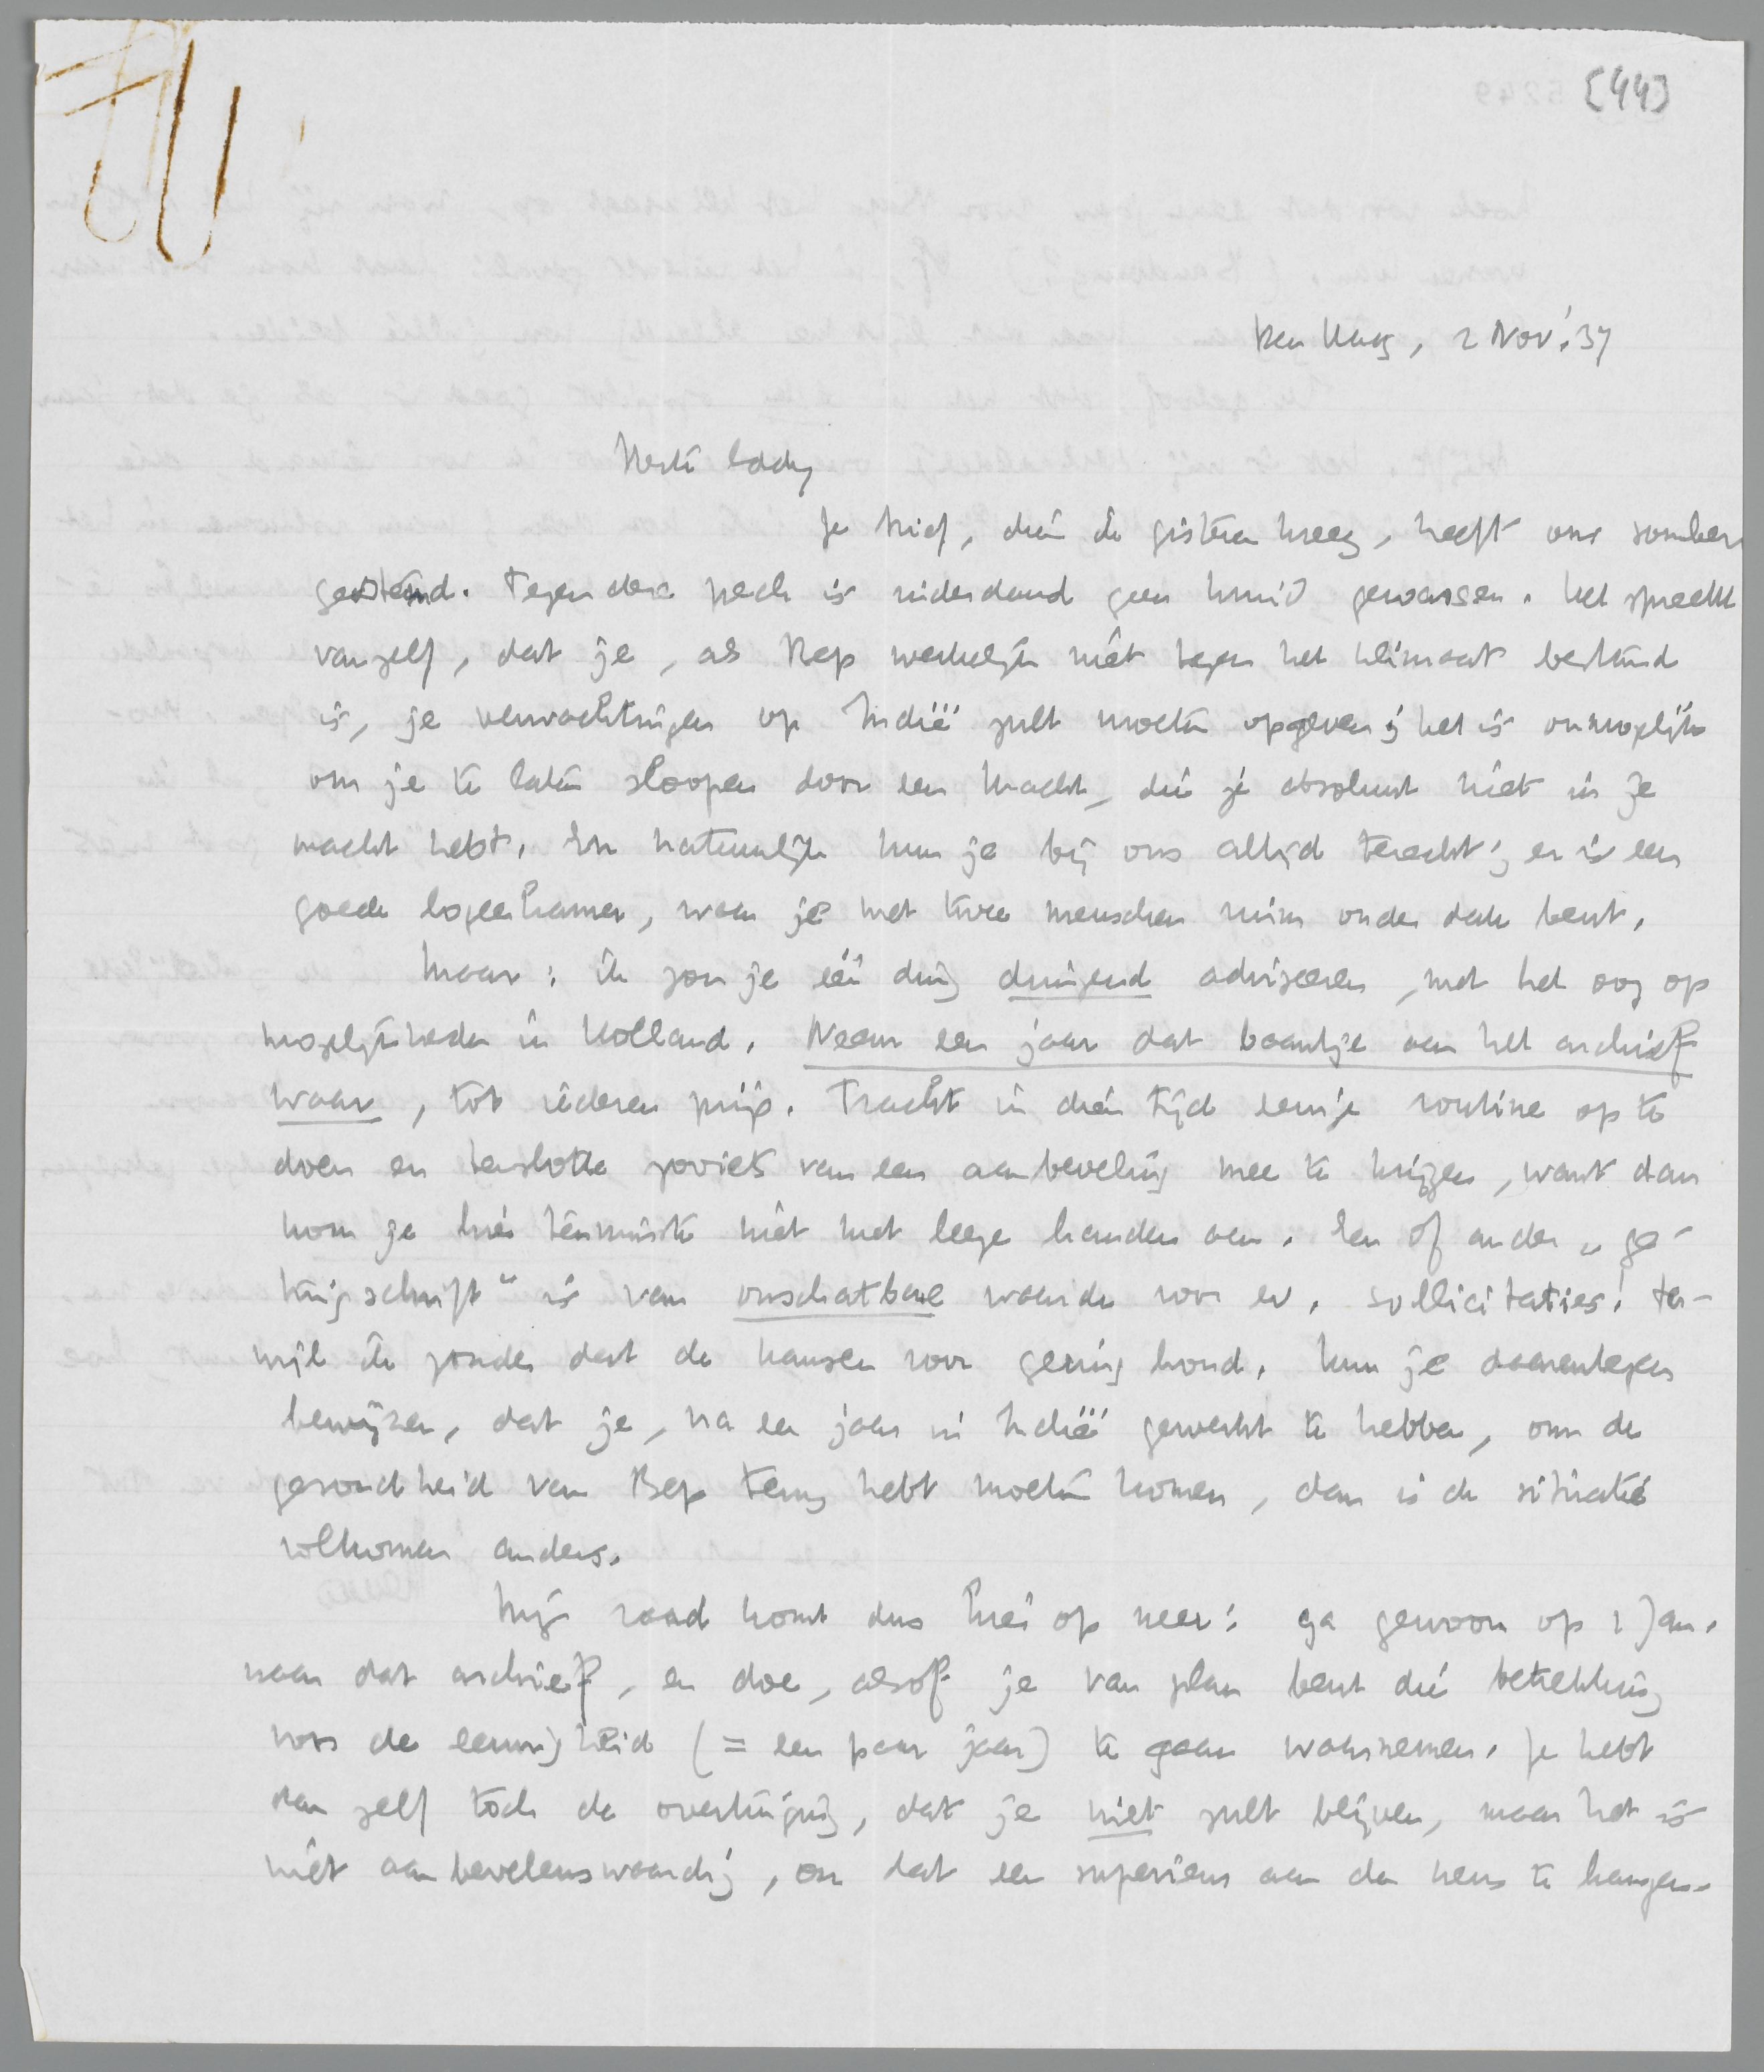 [44]
Den Haag, 2 Nov. '37
Beste Eddy
Je brief, dien ik gisteren kreeg, heeft ons somber
gestemd. Tegen deze pech is inderdaad geen kruid gewassen. Het spreekt
vanzelf, dat je, als Bep werkelijk niet tegen het klimaat bestand
is, je verwachtingen op Indië zult moeten opgeven; het is onmogelijk
om je te laten sloopen door een kracht, die je absoluut niet in je
macht hebt. En natuurlijk kun je bij ons altijd terecht; er is een
goede logeerkamer, waar je met twee menschen ruim onder dak bent.
Maar: ik zou je één ding dringend adviseeren, met het oog op
mogelijkheden in Holland. Neem een jaar dat baantje aan het archief
waar, tot iederen prijs. Tracht in dien tijd eenige routine op te
doen en tenslotte zooiets van een aanbeveling mee te krijgen, want dan
kom je hier tenminste niet met leege handen aan. Een of ander „ge-
tuigschrift" is van onschatbare waarde voor ev. sollicitaties! ter-
wijl ik zonder dat de kansen voor gering houd. Kun je daarentegen
bewijzen, dat je, na een jaar in Indië gewerkt te hebben, om de
gezondheid van Bep terug hebt moeten komen, dan is de situatie
volkomen anders.
Mijn raad komt dus hier op neer: ga gewoon op 1 Jan.
naar dat archief, en doe, alsof je van plan bent die betrekking
voor de eeuwigheid (= een paar jaar) te gaan waarnemen. Je hebt
dan zelf toch de overtuiging, dat je niet zult blijven, maar het is
niet aanbevelenswaardig, om dat een superieur aan den neus te hangen.